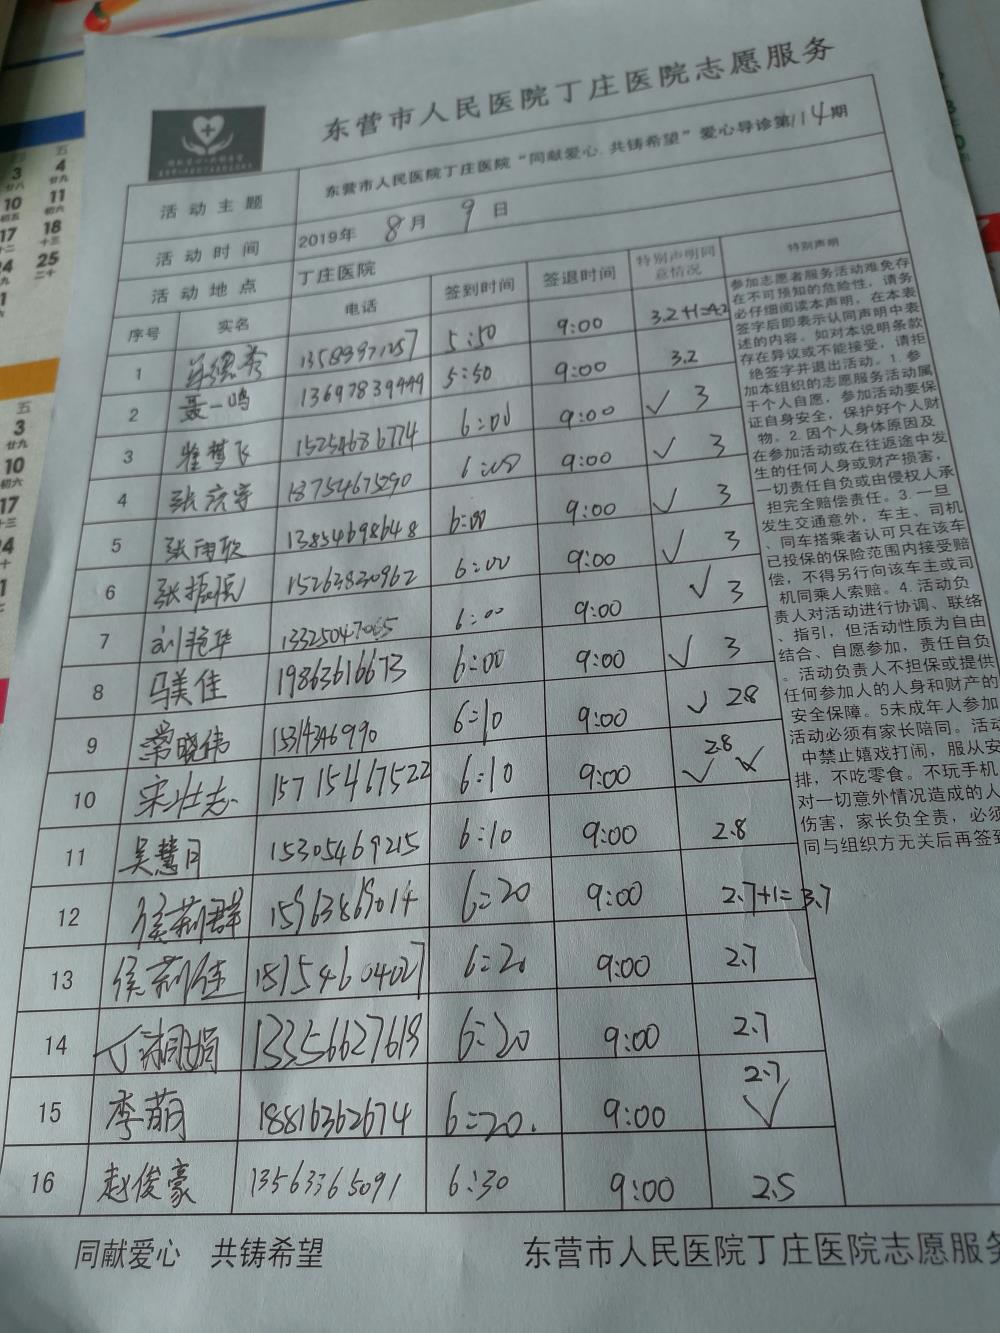 东营市人民医院丁庄医院志愿服务
活动主题 东营市人民医院丁庄医院“同献爱心 共铸希望”爱心导诊第114期
活动时间 2019年 8月 9日
活动地点 丁庄医院
序号 实名 电话 签到时间 签退时间 特别声明同意情况 特别声明
1 13583971257 5:50 9:00 3.2+1=4.2
2 聂一鸣 13697839449 5:50 9:00 3.2
3 崔梦飞 15254636774 6:00 9:00 √ 3
4 张庆宇 18754675290 6:00 9:00 √ 3
5 张雨欣 13854698648 6:00 9:00 √ 3
6 张振虎 15263830962 6:00 9:00 √ 3
7 刘艳华 13325047065 6:00 9:00 √ 3
8 马美佳 19863616673 6:00 9:00 √ 3
9 常晓伟 1334346990 6:10 9:00 √ 2.8
10 宋壮志 15715467522 6:10 9:00 2.8 √
11 吴慧月 15305469215 6:10 9:00 2.8
12 侯莉群 15963869014 6:20 9:00 2.7+1=3.7
13 侯莉佳 18754604027 6:20 9:00 2.7
14 丁湖娟 13356627619 6:20 9:00 2.7
15 李萌 18816362674 6:20. 9:00 2.7 √
16 赵俊豪 13563365091 6:30 9:00 2.5
参加志愿者服务活动难免存
在不可预知的危险性，请务
必仔细阅读本声明，在本表
签字后即表示认同声明中表
述的内容。如对本说明条款
存在异议或不能接受，请拒
绝签字并退出活动。1. 参
加本组织的志愿服务活动属
于个人自愿，参加活动要保
证自身安全，保护好个人财
物。2. 因个人身体原因及
在参加活动或在往返途中发
生的任何人身或财产损害，
一切责任自负或由侵权人承
担完全赔偿责任。3. 一旦
发生交通意外，车主、司机
、同车搭乘者认可只在该车
已投保的保险范围内接受赔
偿，不得另行向该车主或司
机同乘人索赔。4. 活动负
责人对活动进行协调、联络
、指引，但活动性质为自由
结合、自愿参加，责任自负
。活动负责人不担保或提供
任何参加人的人身和财产的
安全保障。5未成年人参加
活动必须有家长陪同。活动
中禁止嬉戏打闹，服从安
排，不吃零食。不玩手机
对一切意外情况造成的人
伤害，家长负全责，必须
同与组织方无关后再签到
同献爱心 共铸希望 东营市人民医院丁庄医院志愿服务